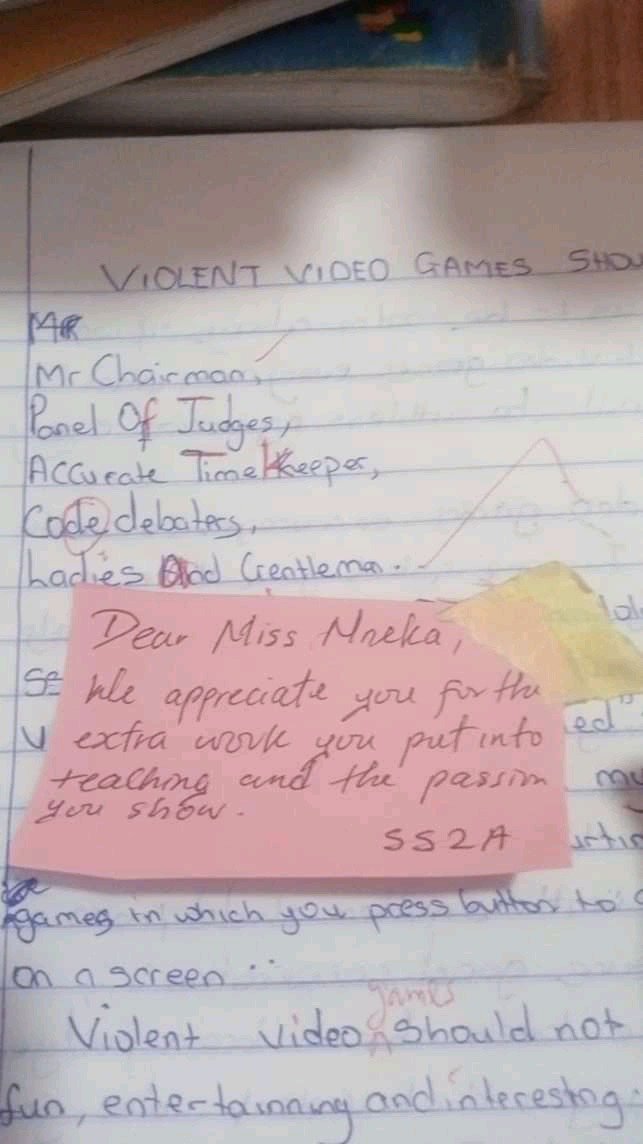 VIOLENT VIDEO GAMES SHOU
Mr
Mr Chairman,
Panel Of Judges,
Accurate TimeKeeper,
Code debaters,
Ladies And Gentleman.
Dear Miss Nneka,
We appreciate you for the
extra work you put into
teaching and the passion
you show.
SS2A
ed
my
games in which you press button to
on a screen
games
Violent video should not
fun, entertainning and interesting